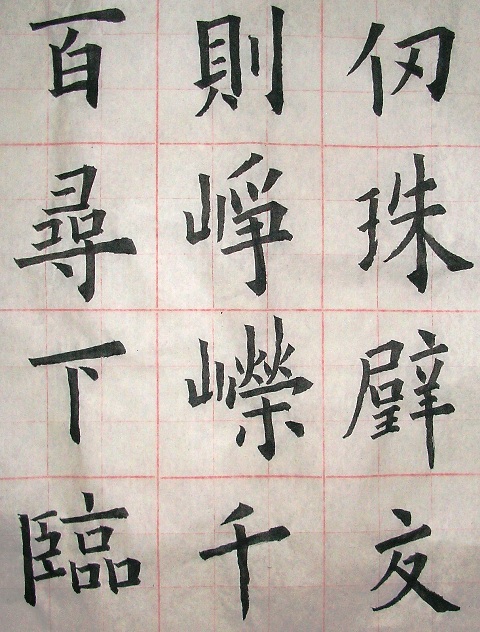 百尋下臨
則崢嶸千
仞珠璧交